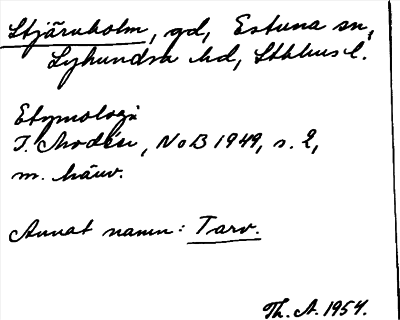 Stjärnholm, gd, Estuna sn,
Lyhundra hd, Sthlms l.
Etymologi
I. Modéer, NoB 1949, s. 2,
m. hänv.
Annat namn: Tarv.
Th. A. 1954.